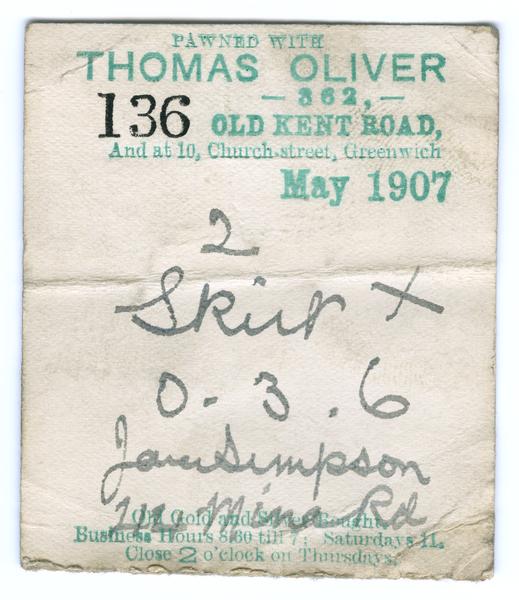 PAWNED WITH
THOMAS OLIVER
— 362, —
136 OLD KENT ROAD,
And at 10, Church-street, Greenwich
May 1907
2
Skirt X
0 - 3 . 6
Jane Simpson
Mina Rd
Old Gold and Silver Bought.
Business Hours 8.30 till 7; Saturdays 11.
Close 2 o'clock on Thursdays.